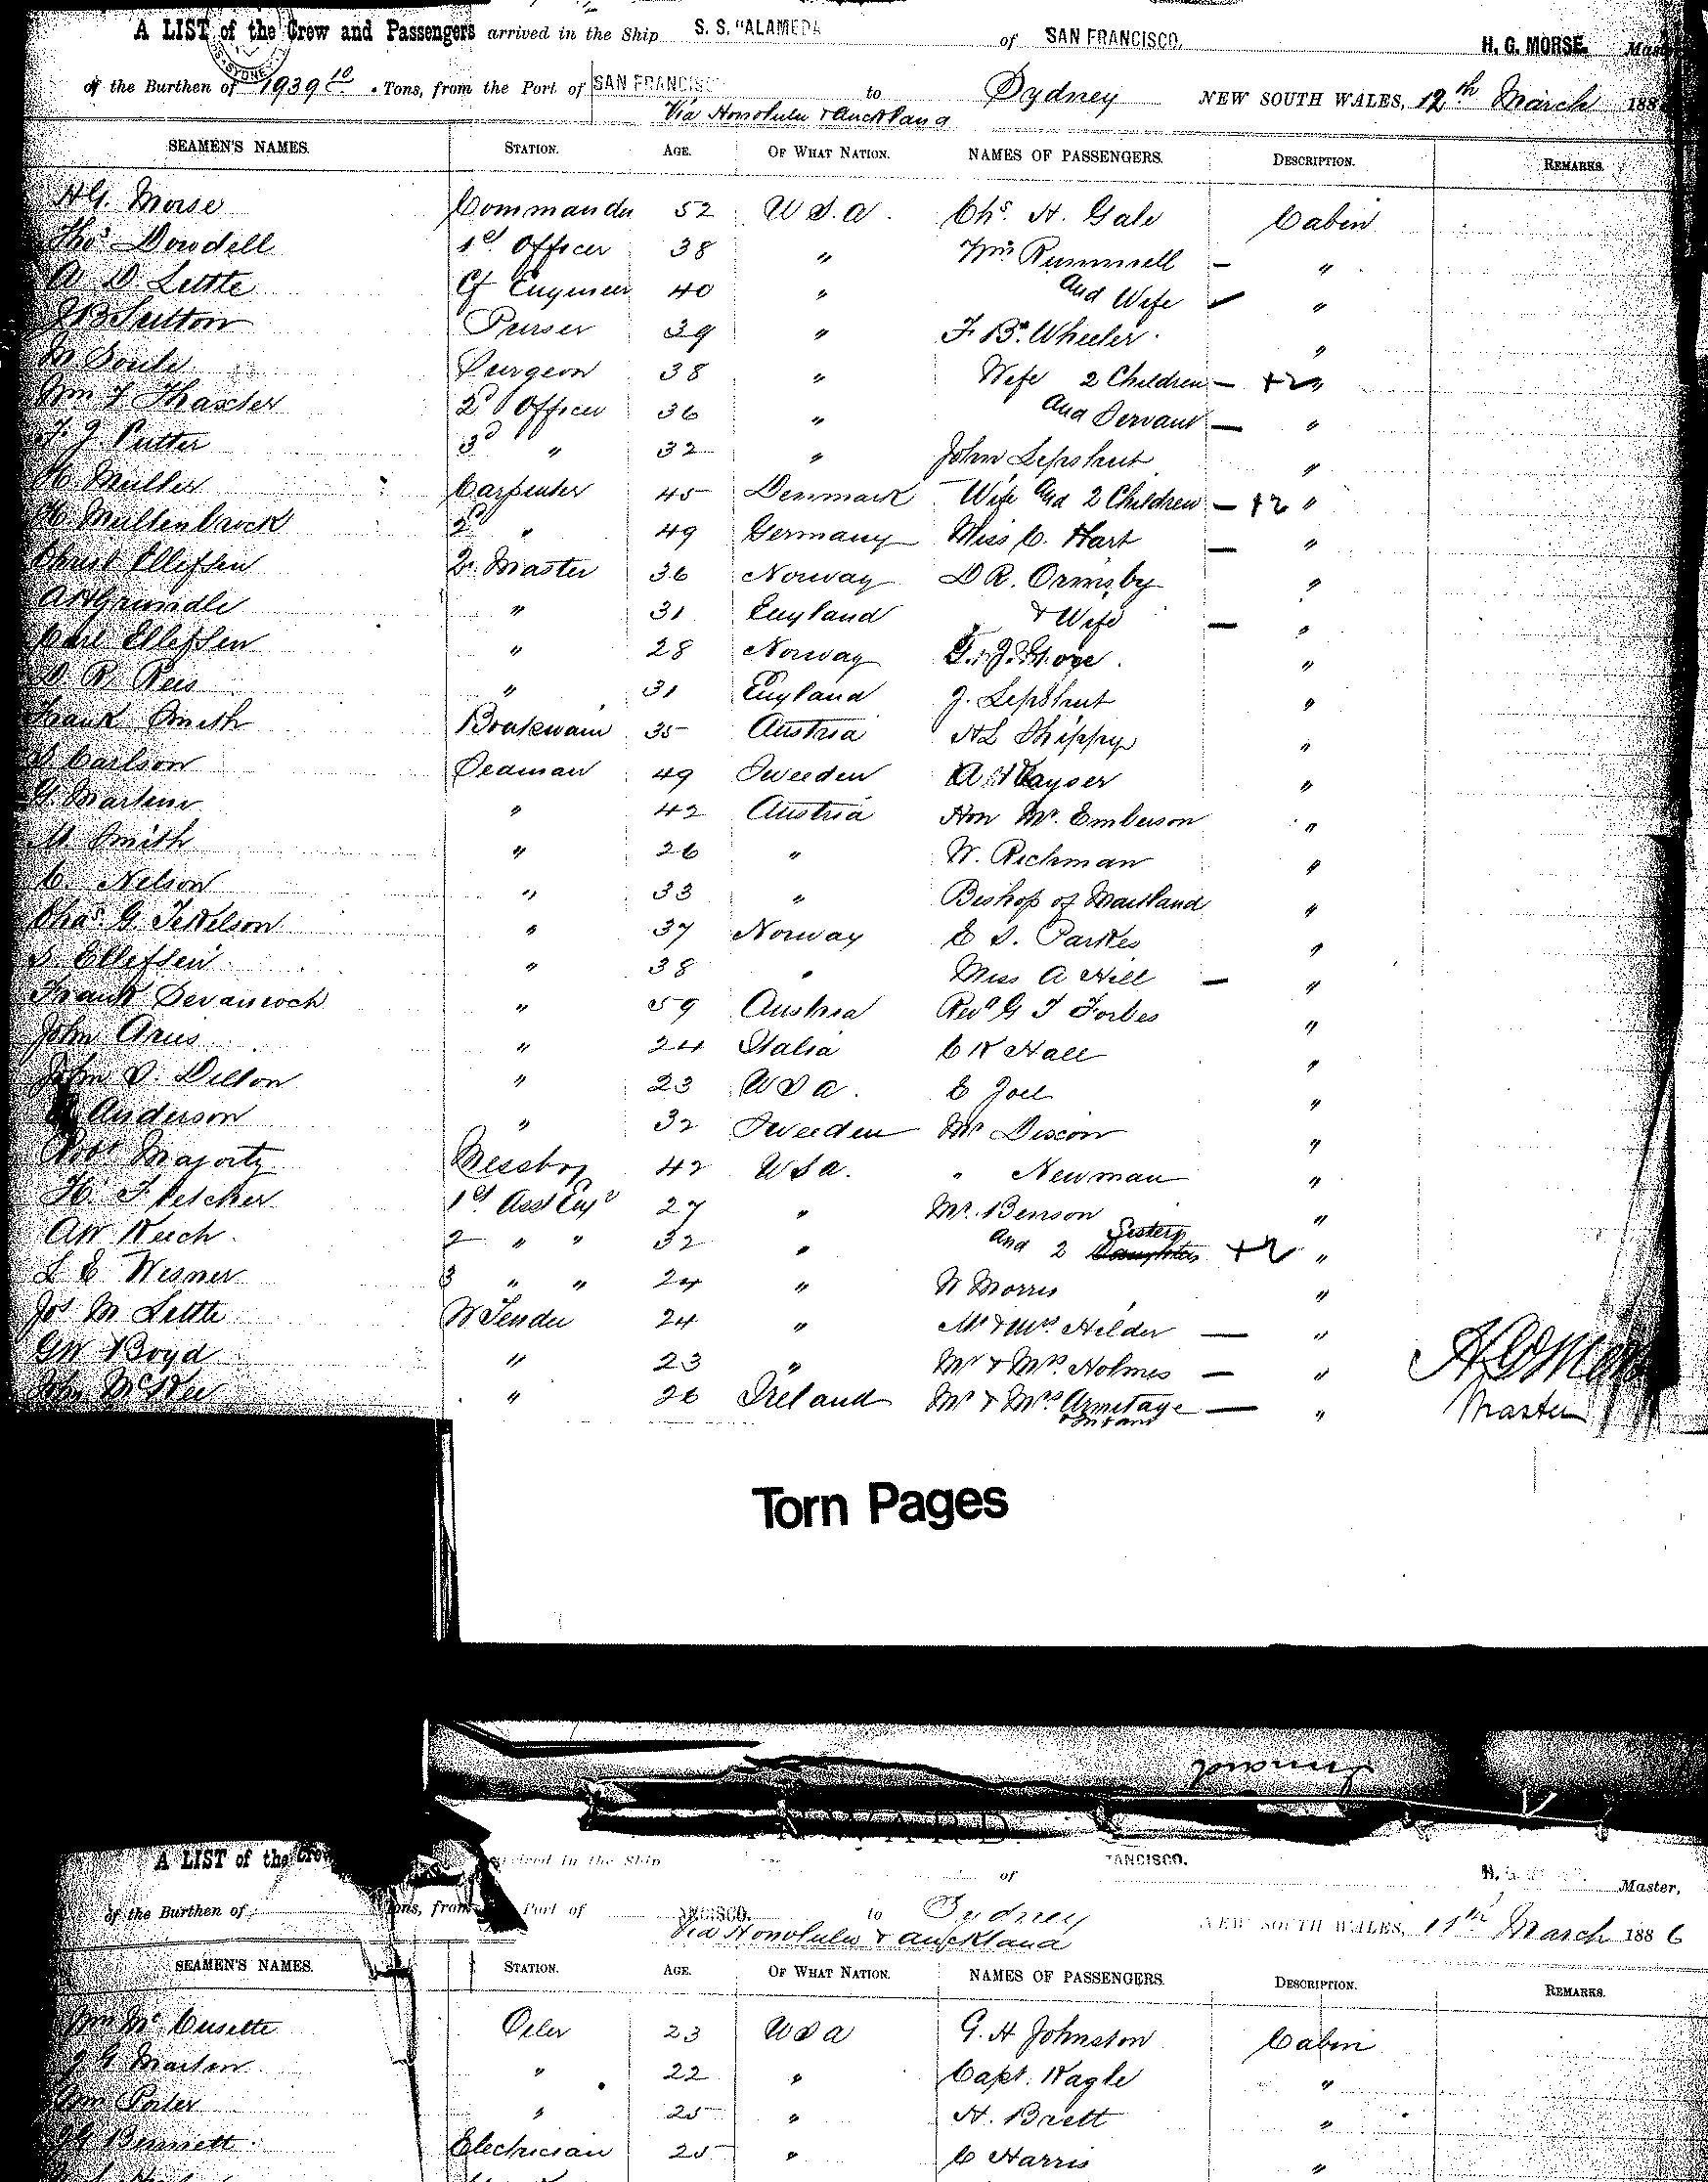 A LIST of the Crew and Passengers arrived in the Ship S. S. "ALAMEDA of SAN FRANCISCO, H. G. MORSE. Master
of the Burthen of 1939 10 Tons, from the Port of SAN FRANCISC to Sydney NEW SOUTH WALES, 12th March 188
Via Honolulu & Auckland
SEAMEN'S NAMES. STATION. AGE. OF WHAT NATION. NAMES OF PASSENGERS. DESCRIPTION. REMARKS.
HG. Morse Commander 52 U S. a. Chs. H. Gale Cabin
Thos Dowdell 1st Officer 38 " Wm Rummell — "
A D Little Cf Engineer 40 " and Wife "
J B Sutton Purser 39 " F. B. Wheeler "
M Soule Surgeon 38 " Wife 2 Children — +2 "
Wm F Thaxter 2d Officer 36 " and Servant — "
F. J. Putter 3d " 32 " John Lepshut "
H Muller Carpenter 45 Denmark Wife and 2 Children — +2 "
H Mullenbrock 2 " 49 Germany Miss C. Hart — "
Christ Ellefsen Qr. Master 36 Norway D R. Ormsby "
A H Grundle " 31 England & Wife — "
Carl Ellefsen " 28 Norway "
D R Rees " 31 England J. Lepshut "
Frank Smith Boatswain 35 Austria H L Shippy "
Carlson Seaman 49 Sweeden A Kayser "
G. Martin " 42 Austria Hon Mr. Emberson "
M. Smith " 26 " W. Richman "
C. Nelson " 33 " Bishop of Maitland "
Chas. G. Tekelson " 37 Norway E S. Parkes "
S. Ellefsen " 38 " Miss A Hill — "
Frank " 59 Austria Revd G T Forbes "
John Arus " 24 Italia C K Hall "
John D. Dillon " 23 U S a. C Joel "
Anderson " 32 Sweeden Mr Dixon "
Robt Majority Messboy 42 U S a. " Newman "
H. Fletcher 1st Asst Engr 27 " Mr. Benson "
AW Keech 2 " " 32 " and 2 Sisters +2 "
L E Wesner 3 " " 24 " W Morris "
Jos M Little W Tender 24 " Mr & Mrs. Hilder — "
GW Boyd " 23 " Mr & Mrs. Holmes — "
John McKee " 26 Ireland Mr & Mrs. Armitage — "
& Infant
H G Morse
Master
Torn Pages
Inward
A LIST of the Crew arrived in the Ship of FRANCISCO. H. Master,
of the Burthen of Tons, from Port of ANCISCO. to Sydney NEW SOUTH WALES, 11th March 1886
Via Honolulu & Auckland
SEAMEN'S NAMES. STATION. AGE. OF WHAT NATION. NAMES OF PASSENGERS. DESCRIPTION. REMARKS.
Wm Mc Cusette Oiler 23 U S a G. H Johnston Cabin
J G Marten " 22 " Capt. Nagle "
Wm Porter " 25 " H. Brett "
Bennett Electrician 25 " C Harris "